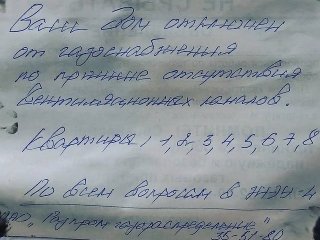 Ваш дом отключен
от газоснабжения
по притине отсутствия
вентиляционных каналов.
Квартиры, 1,2,3,4,5,6,7,8
По всем вопросам в ЖЭУ-4
газораспределение"